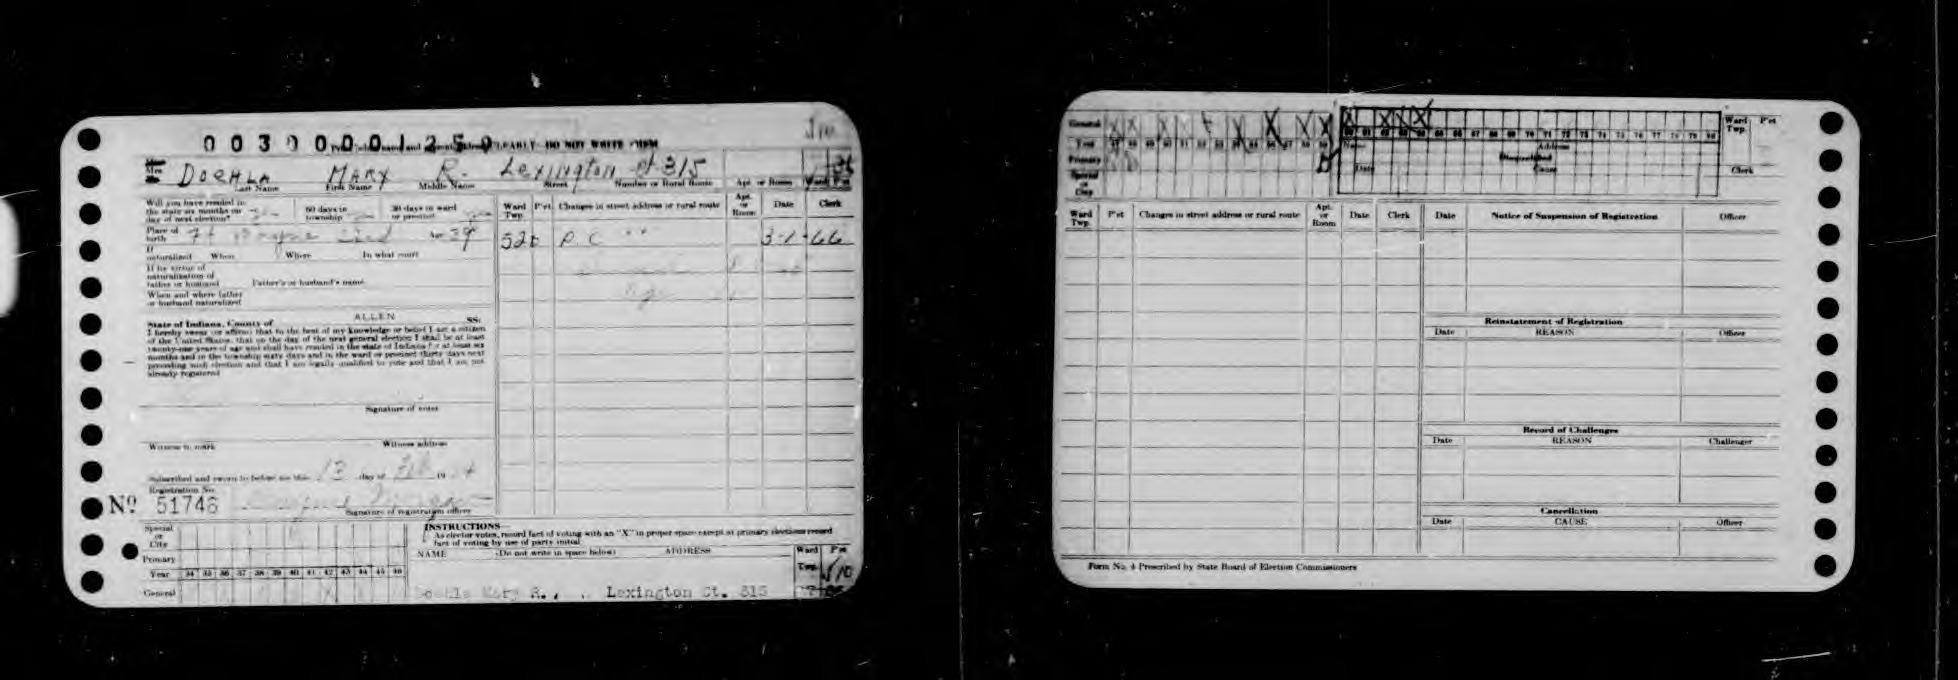 0 0 3 0 0 0 0 1 2 5 0
CLEARLY—DO NOT WRITE FIRM
Mrs. DOEHLA MARY R. Lexington ct 315 36
Last Name First Name Middle Name Street Number or Rural Route Apt. or Room Ward P'ct
Will you have resided in the state six months on day of next election? 60 days in township 30 days in ward or precinct
Place of birth Ft Wayne Ind Age 39
If naturalized When Where In what court
If by virtue of naturalization of father or husband Father's or husband's name
When and where father or husband naturalized
State of Indiana, County of ALLEN SS:
I hereby swear (or affirm) that to the best of my knowledge or belief I am a citizen
of the United States; that on the day of the next general election I shall be at least
twenty-one years of age and shall have resided in the state of Indiana for at least six
months and in the township sixty days and in the ward or precinct thirty days next
preceding such election and that I am legally qualified to vote and that I am not
already registered
Signature of voter
Witness to mark Witness address
Subscribed and sworn to before me this 13 day of Feb 19
Registration No.
Nº 51746
Signature of registration officer
Ward Twp. P'ct Changes in street address or rural route Apt. or Room Date Clerk
526 P.C. " " 3-1-66
Special or City
Primary
Year 34 35 36 37 38 39 40 41 42 43 44 45 46
General
INSTRUCTIONS—
As elector votes, record fact of voting with an "X" in proper space except at primary elections record
fact of voting by use of party initial
NAME (Do not write in space below) ADDRESS Ward Twp. P'ct
Doehla Mary R., Lexington Ct. 315
General X X X X X X X X X X X X
Year 47 48 49 50 51 52 53 54 55 56 57 58 59 60 61 62 63 64 65 66 67 68 69 70 71 72 73 74 75 76 77 78 79 80
Primary
Special or City
Name Address
Disqualified
Date Cause
Ward Twp. P'ct
Clerk
Ward Twp. P'ct Changes in street address or rural route Apt. or Room Date Clerk
Date Notice of Suspension of Registration Officer
Reinstatement of Registration
Date REASON Officer
Record of Challenges
Date REASON Challenger
Cancellation
Date CAUSE Officer
Form No. 4 Prescribed by State Board of Election Commissioners